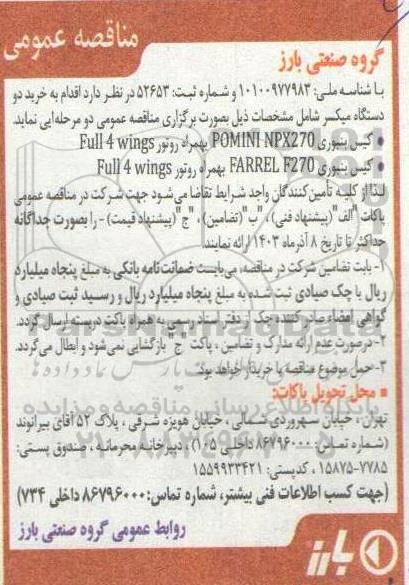 مناقصه عمومی
گروه صنعتی بارز
با شناسه ملی: ۱۰۱۰۰۹۷۷۹۸۳ و شماره ثبت: ۵۲۶۵۳ در نظر دارد اقدام به خرید دو
دستگاه میکسر شامل مشخصات ذیل بصورت برگزاری مناقصه عمومی دو مرحله‌ایی نماید.
• کیس بنبوری POMINI NPX270 بهمراه روتور Full 4 wings
• کیس بنبوری FARREL F270 بهمراه روتور Full 4 wings
لذا از کلیه تأمین‌کنندگان واجد شرایط تقاضا می‌شود جهت شرکت در مناقصه عمومی
پاکات "الف" (پیشنهاد فنی) ، "ب" (تضامین) ، "ج" (پیشنهاد قیمت) - را بصورت جداگانه
حداکثر تا تاریخ ۸ آذرماه ۱۴۰۳ ارائه نمایند.
۱- بابت تضامین شرکت در مناقصه، می‌بایست ضمانت‌نامه بانکی به مبلغ پنجاه میلیارد
ریال یا چک صیادی ثبت شده به مبلغ پنجاه میلیارد ریال و رسید ثبت صیادی و
گواهی امضاء صادرکننده چک از دفتر اسناد رسمی به همراه پاکت دربسته ارسال گردد.
۲- درصورت عدم ارائه مدارک و تضامین ، پاکت "ج" بازگشایی نمی‌شود و ابطال می‌گردد.
۳- حمل موضوع مناقصه با خریدار خواهد بود.
■ محل تحویل پاکات:
تهران ، خیابان سهروردی شمالی ، خیابان هویزه شرقی ، پلاک ۵۲ آقای بیرانوند
(شماره تماس: ۸۶۷۹۶۰۰۰ داخلی ۱۰۵) ، دبیرخانه محرمانه ، صندوق پستی:
۱۵۸۷۵-۷۷۸۵ ، کدپستی: ۱۵۵۹۹۳۳۴۲۱
(جهت کسب اطلاعات فنی بیشتر، شماره تماس: ۸۶۷۹۶۰۰۰ داخلی ۷۳۴)
روابط عمومی گروه صنعتی بارز
بارز